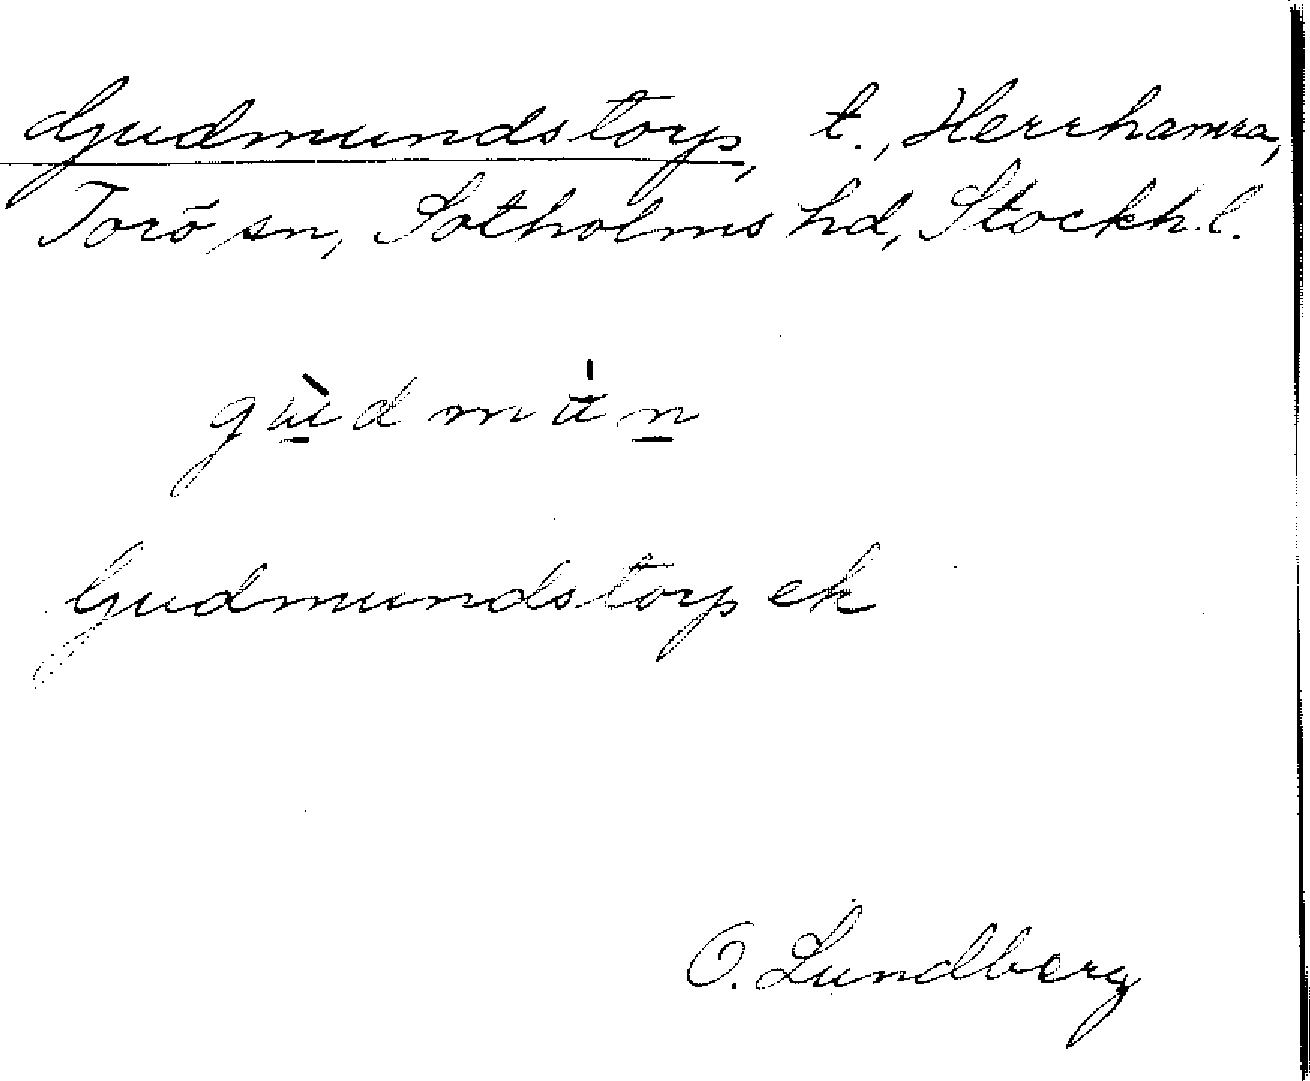 Gudmundstorp, t., Herrhamra,
Torö sn, Sotholms hd, Stockh. l.
gùdmu̇n
Gudmundstorp ek
O. Lundberg